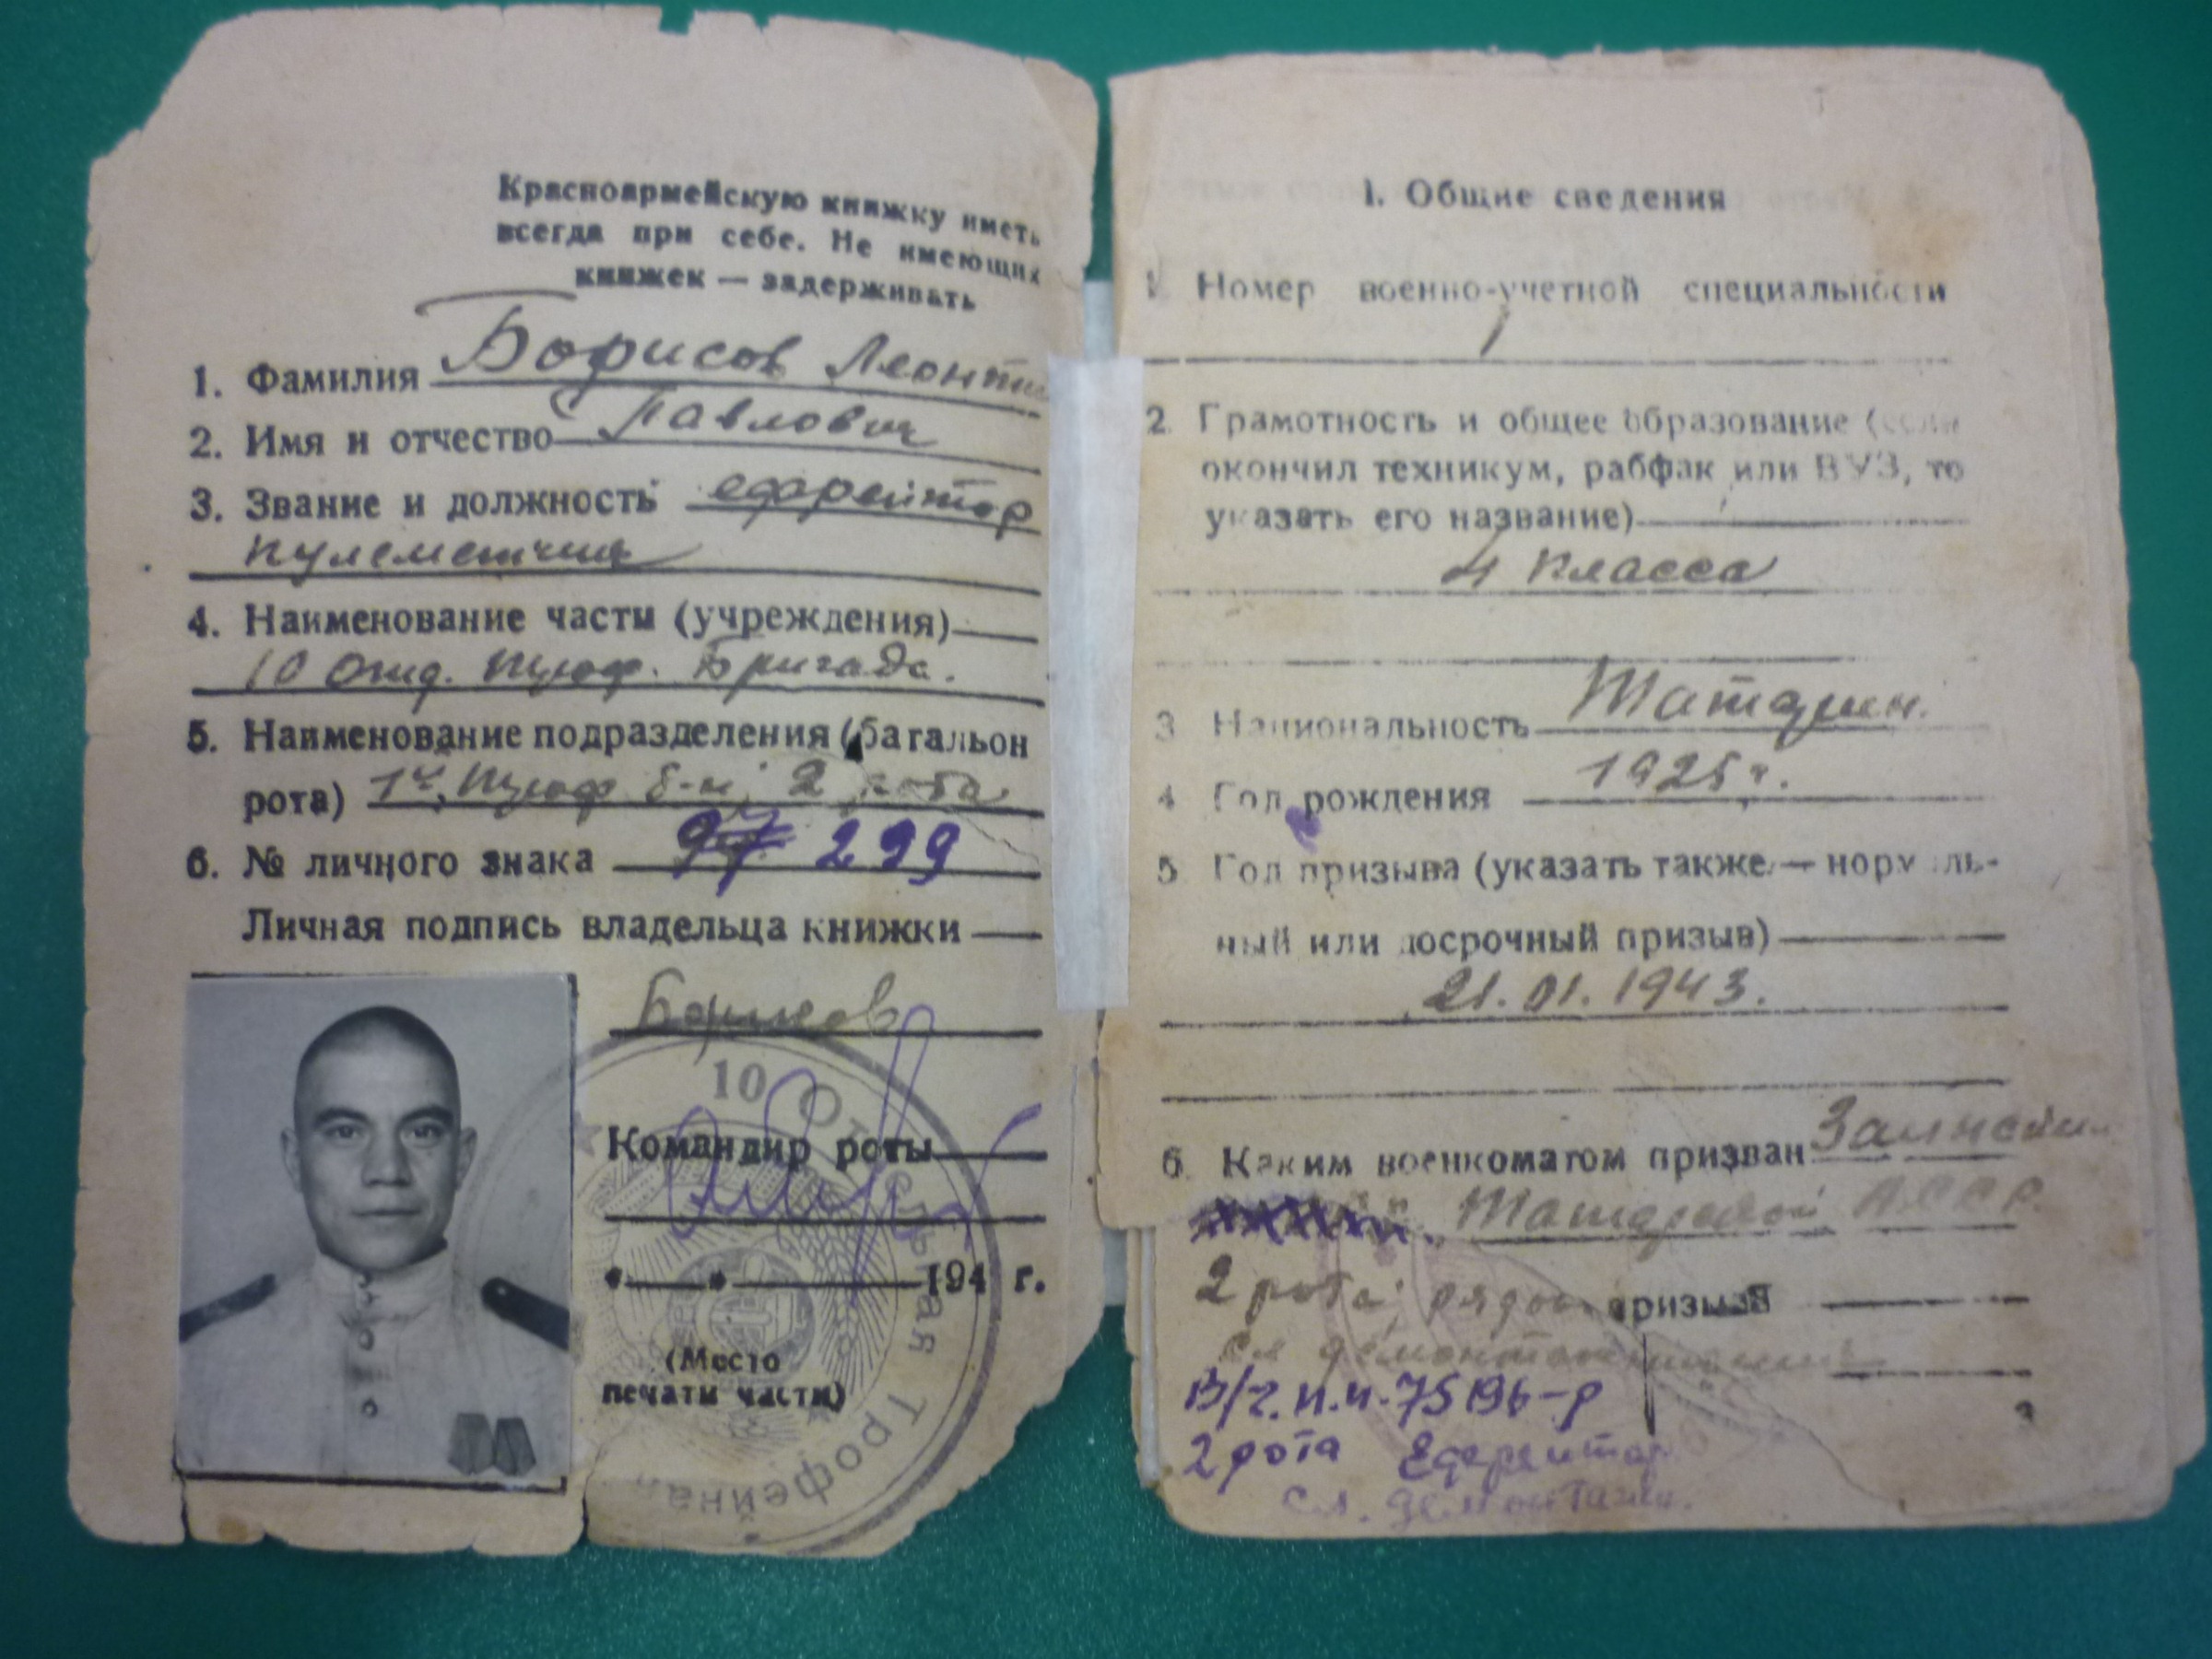 Красноармейскую книжку иметь
всегда при себе. Не имеющих
книжек — задерживать
1. Фамилия Борисов Леонти
2. Имя и отчество Павлович
3. Звание и должность ефрейтор
пулеметчик
4. Наименование части (учреждения)
10 Отд. Троф. Бригада.
5. Наименование подразделения (батальон
рота) 1й Троф б-н, 2 рота
6. № личного знака 299
Личная подпись владельца книжки
Борисов
Командир роты
« » 194 г.
(Место
печати части)
10 Отдельная Трофейная
1. Общие сведения
1. Номер военно-учетной специальности
2. Грамотность и общее образование (если
окончил техникум, рабфак или ВУЗ, то
указать его название)
4 класса
3 Национальность Татарин.
4 Год рождения 1925 г.
5 Год призыва (указать также — нормаль-
ный или досрочный призыв)
21.01.1943.
6. Каким военкоматом призван Заинским
Татарской АССР.
2 рота, рядов призыва
В/ч. п.п. 75196-р
2 рота Ефрейтор
сл. демонтажн.